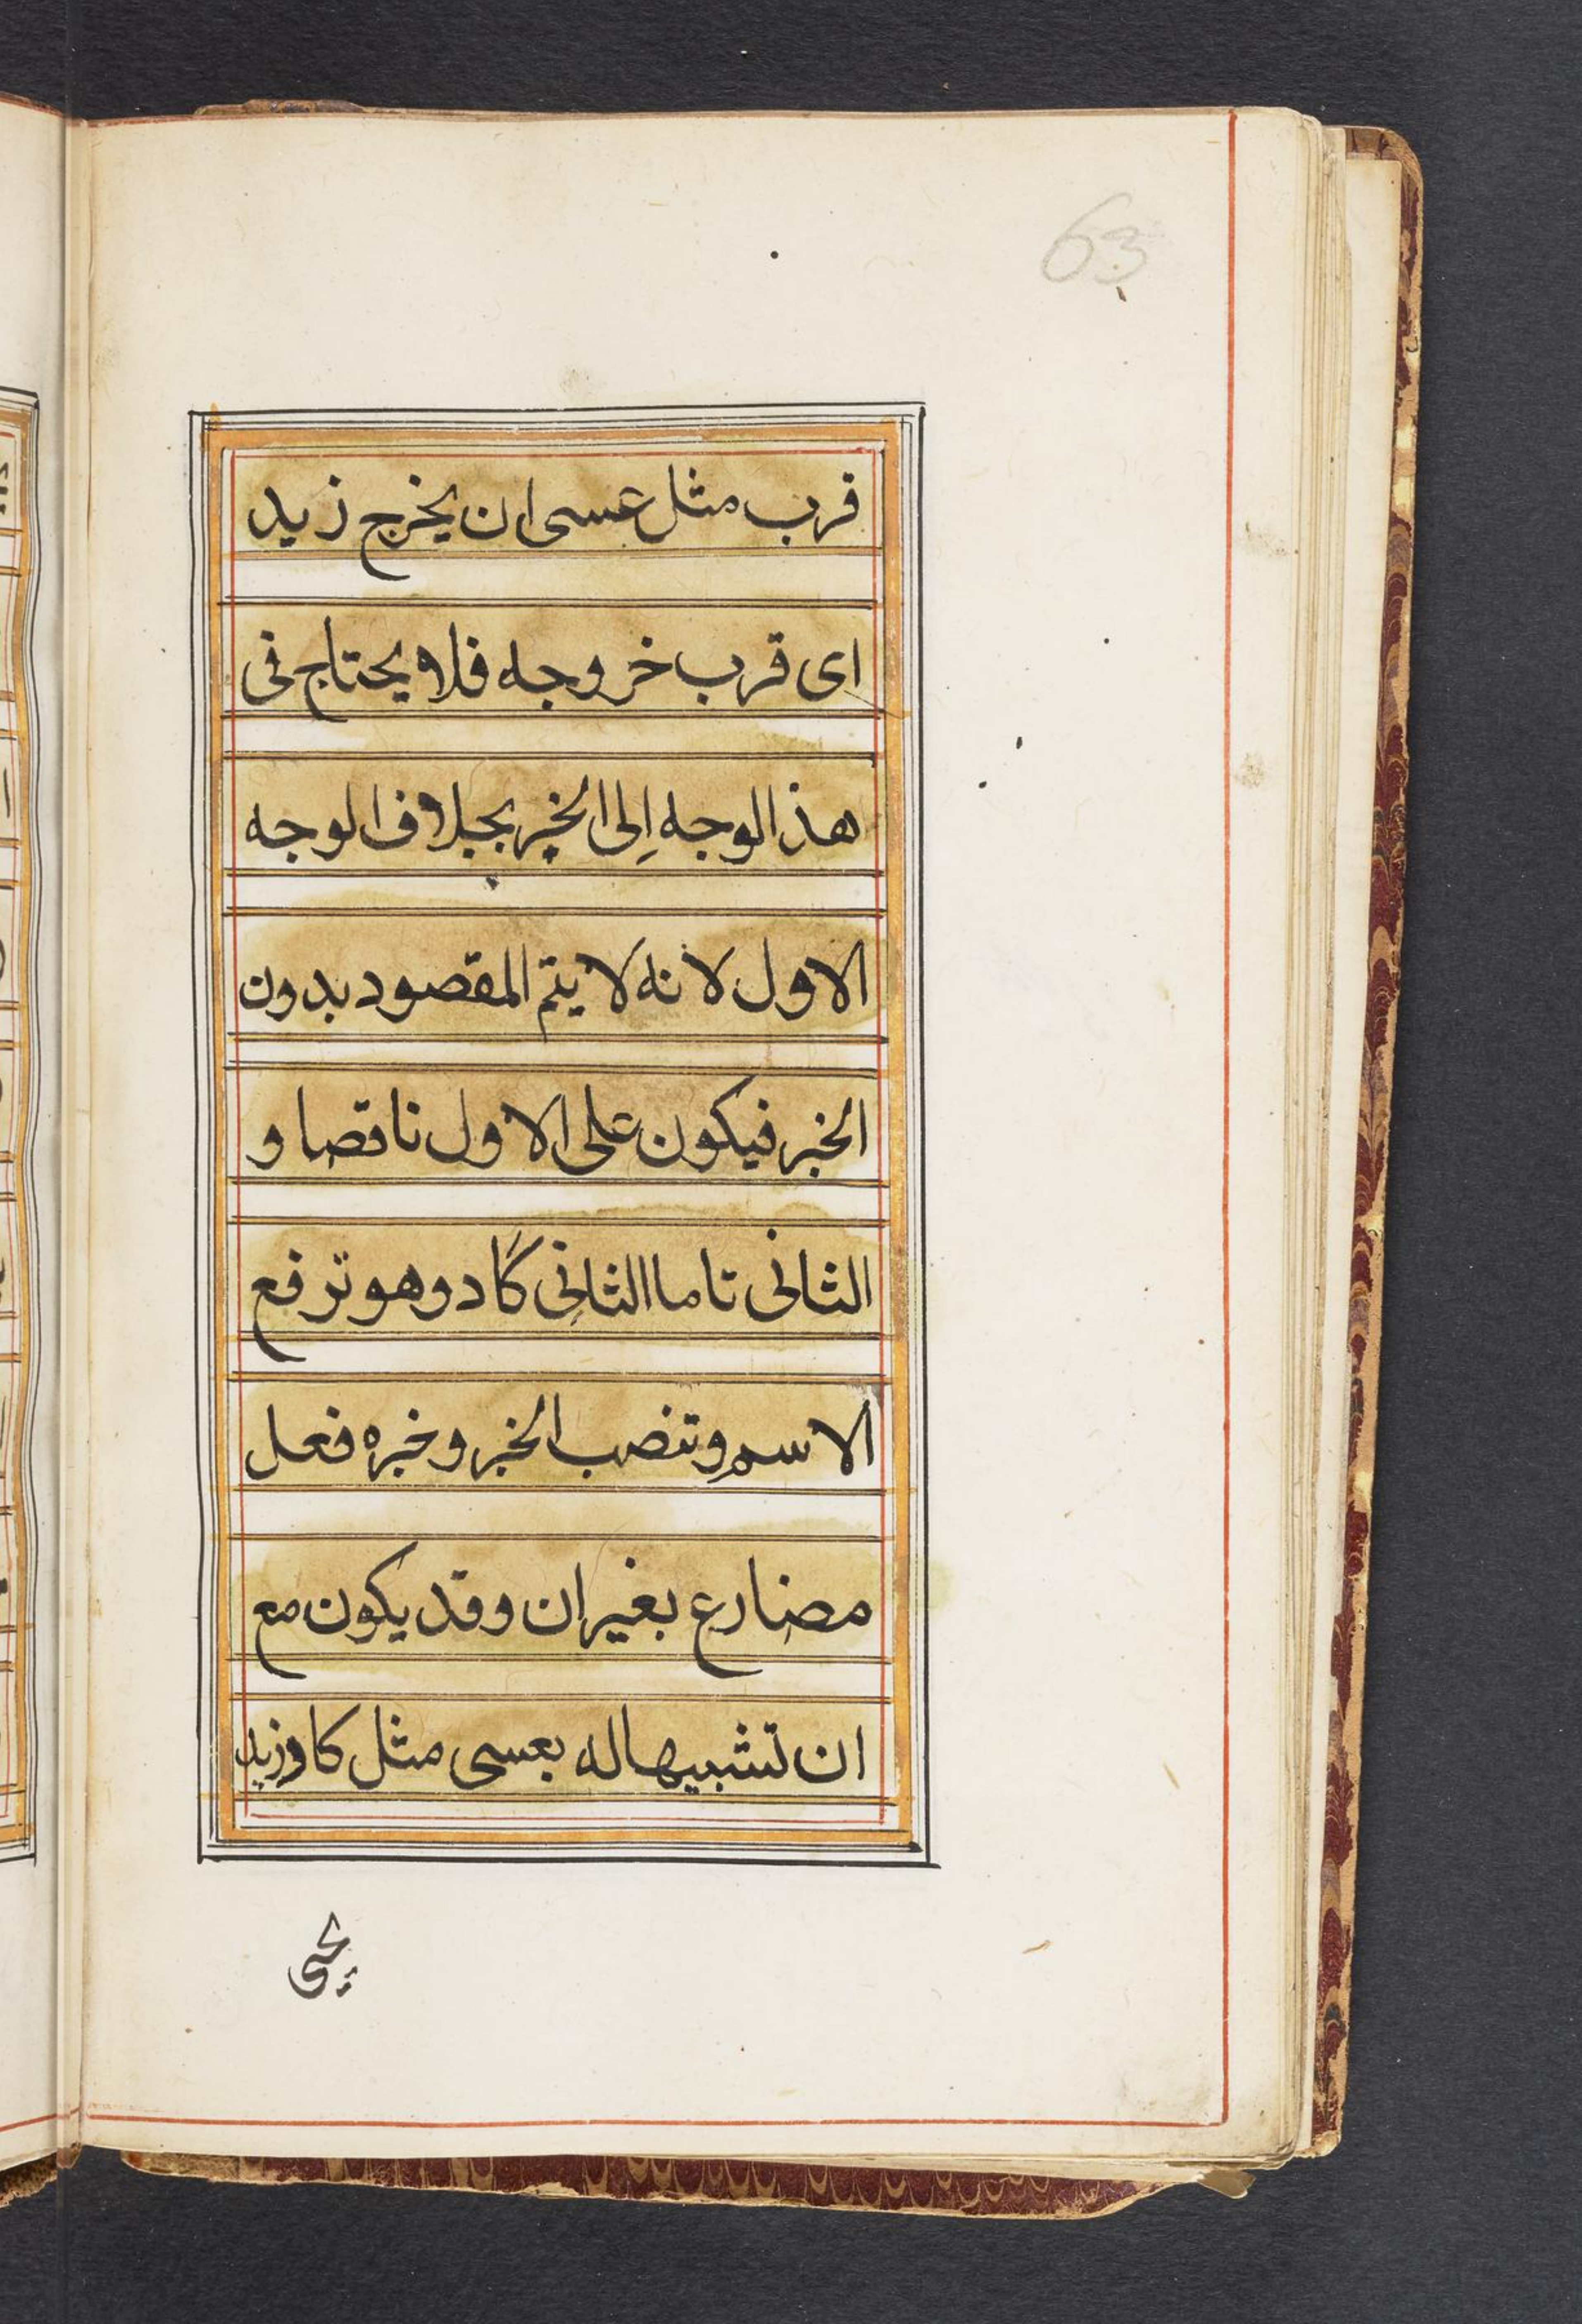 63
قرب مثل عسى ان يخرج زيد
اى قرب خروجه فلا يحتاج فى
هذ الوجه اِلى الخبر بخلاف الوجه
الاول لانه لا يتم المقصود بدون
الخبر فيكون على الاول ناقصا و
الثانى تاما الثانى كاد وهو ترفع
الاسم وتنصب الخبر وخبره فعل
مضارع بغير ان وقد يكون مع
ان تشبيها له بعسى مثل كاد زيد
يجئ